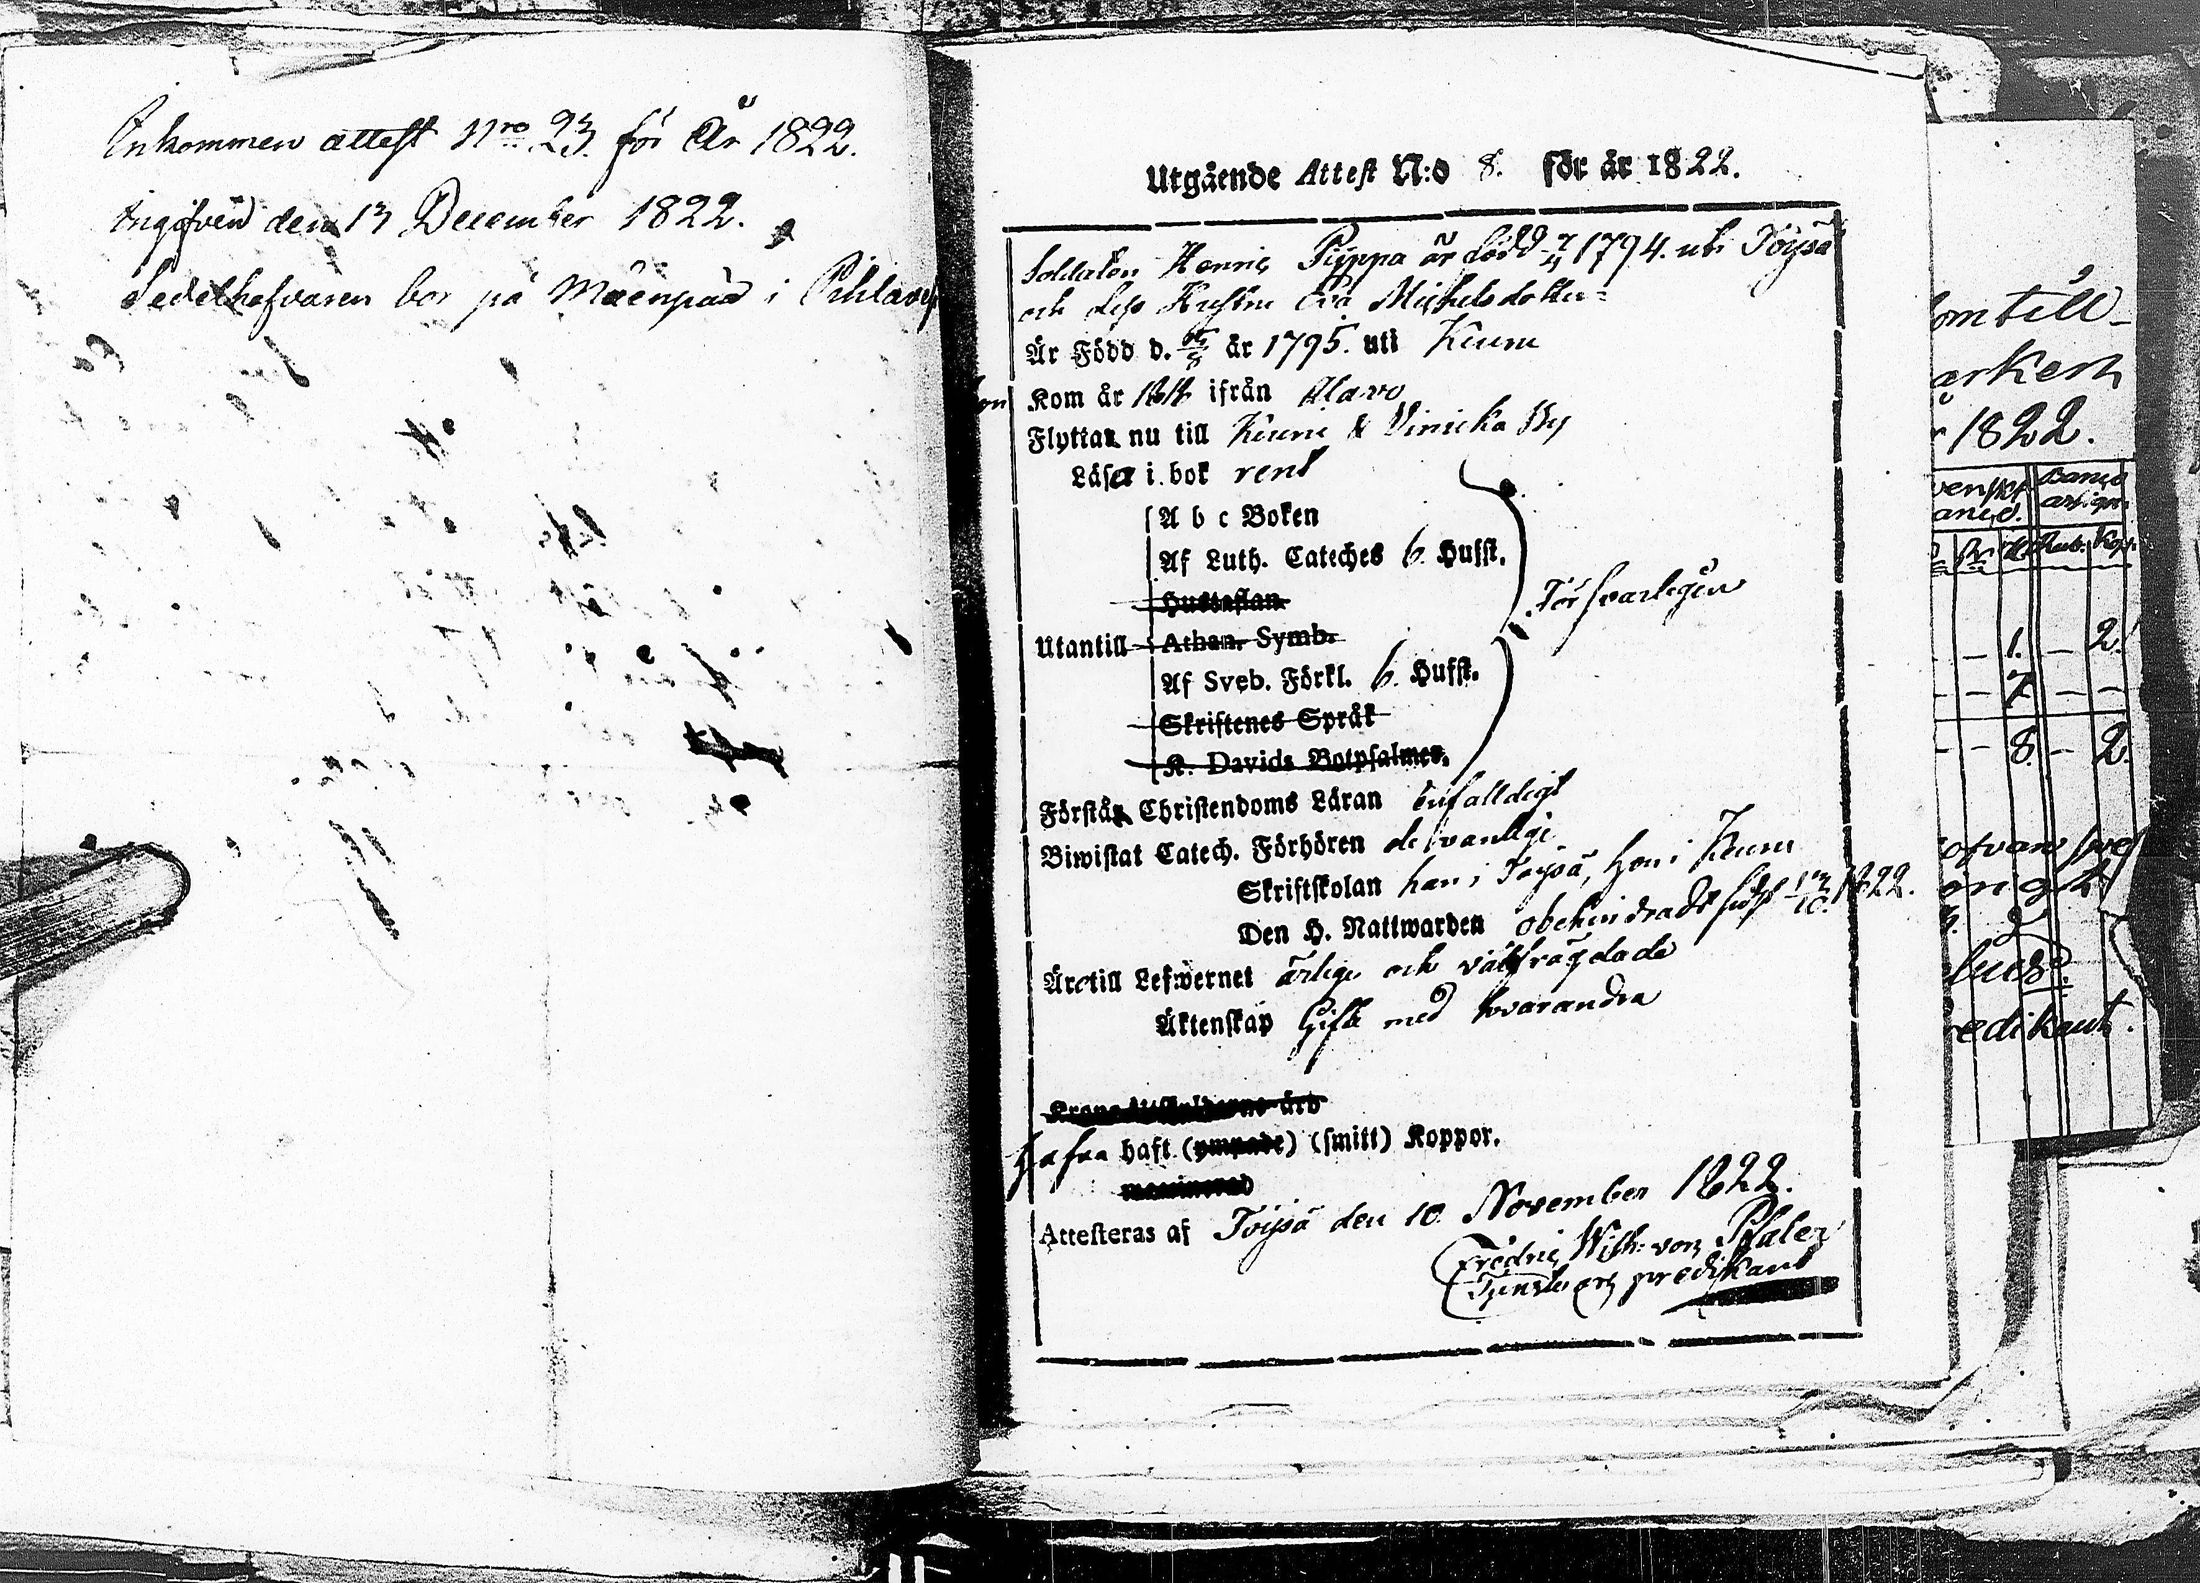 Inkommen attest Nro 23. för År 1822.
Ingifven den 13 December 1822.
Sedelhafvaren bor på Mäenpää i Pihlava
Utgående Attest N:o 8. för år 1822.
Soldaten Henric Pyppa är född 7 1794. uti Töysä
och dess Hustru Eva Michelsdotter
Är Född d. år 1795. uti Keuru
Kom år ifrån Alavo
Flyttar nu till Keuru & By
Läsa i bok rent
A b c Boken
Af Luth. Cateches 6. Hufst.
Hustaflan
Försvarligen
Utantill Athan. Symb.
Af Sveb. Förkl. 6. Hufst.
Skriftenes Språk
K. Davids Botpsalmer.
Förstår Christendoms Läran enfalldigt
Biwistat Catech. Förhören de vanlige
Skriftskolan han i Töysä, hon i Keuru
Den H. Nattwarden obehindradt sidst 13/10. 1822.
Äro till Lefwernet ärlige och välfrägdade
Äktenskap Gifte med hvarandra
hafva haft (ympade) (smitt) Koppor.
vaccinerad
Attesteras af Töysä den 10 November 1822.
Fredric Wilh: von Pfaler
predikant
om till
1822.
1. – 2.
7 – –
8. – 2.
edikant.